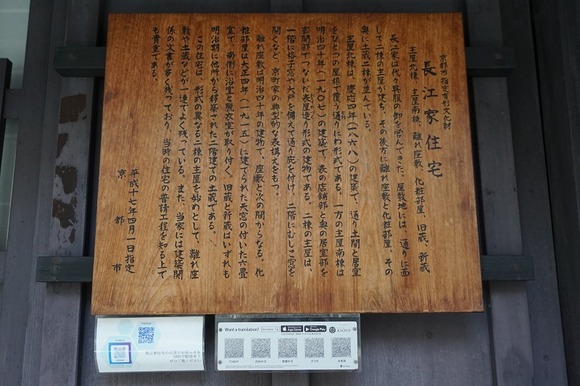 京都市指定有形文化財
長江家住宅
主屋北棟、主屋南棟、離れ座敷、化粧部屋、旧蔵、新蔵
長江家は代々呉服の卸を営んできた。屋敷地には、通りに面
して二棟の主屋が建ち、その後方に離れ座敷と化粧部屋、その
奥に土蔵二棟が並んでいる。
主屋北棟は、慶応四年(一八六八)の建築で、通り土間と居室
をひとつの屋根で覆う通りにわ形式である。一方の主屋南棟は
明治四十年(一九〇七)の建築で、表の店舗部と奥の居室部を
玄関部でつないだ表屋造り形式の建物である。二棟の主屋は、
一階に格子窓や大戸を備えて通り庇を付け、二階にむしこ窓を
開くなど、京町家の典型的な表構えをもつ。
離れ座敷は明治四十年の建物で、座敷と次の間からなる。化
粧部屋は大正四年(一九一五)に建てられた天窓の付いた六畳
室で、南側に浴室と脱衣室が取り付く。旧蔵と新蔵はいずれも
明治期に他所から移築された二階建ての土蔵である。
この住宅は、形式の異なる二棟の主屋を始めとして、離れ座
敷や土蔵などが一連でよく残っている。また、当家には建築関
係の文書が多く残っており、当時の住宅の普請工程を知る上で
も貴重である。
平成十七年四月一日指定
京都市
Want a translation?
App Store
Google Play